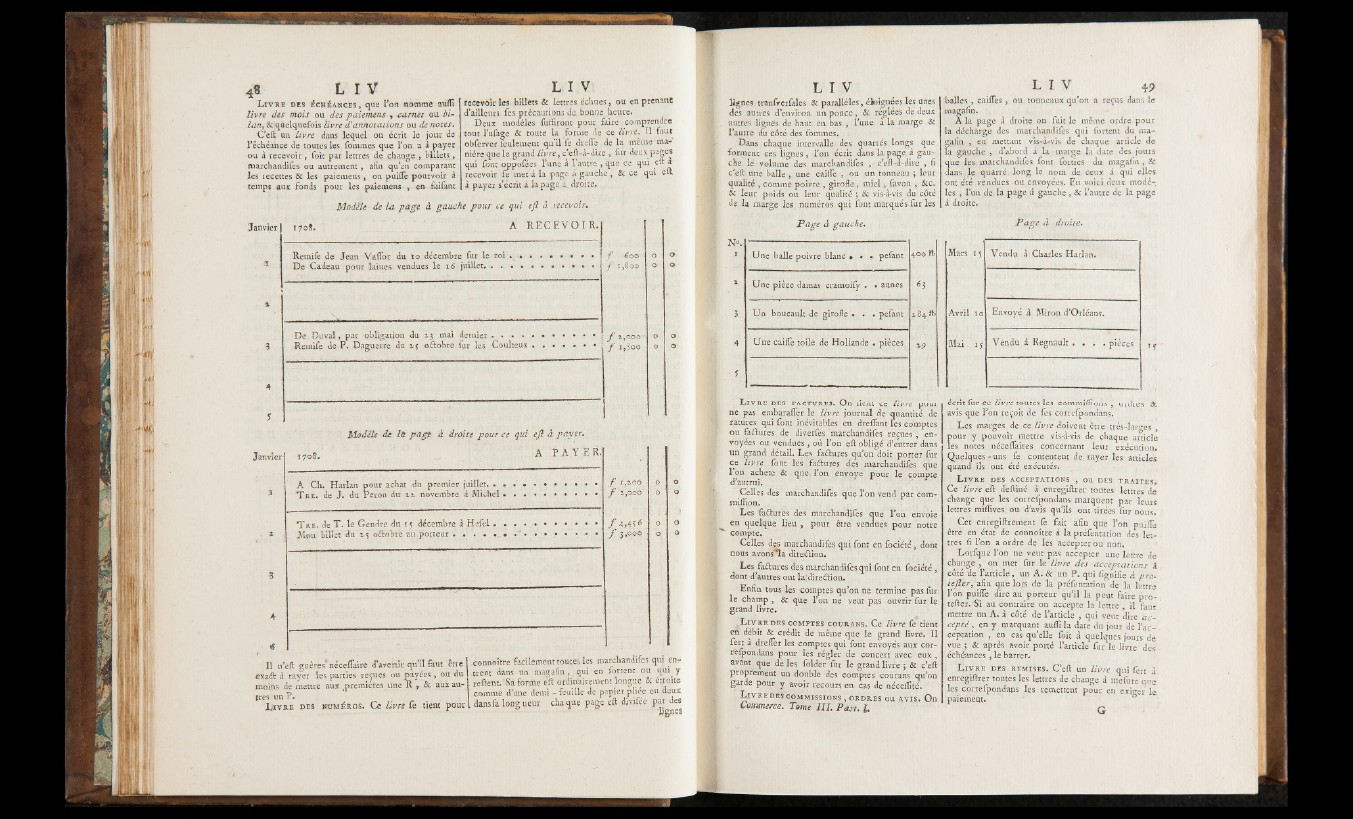 48 LIV LIV
LIVRE DES ÉCHÉANCES, que l'on nomme aussi
livre des mois ou des paiemens, carnet ou bi-
lan, & quelquefois livre d'annotations ou de notes.
C'est un livre dans lequel on écrit le jour de
l'échéance de toutes les sommes que l'on a à payer
ou à recevoir, soit par lettres de change, billets,
marchandises ou autrement, afin qu'en comparant
les recettes & les paiemens, on puisse pourvoir à
temps aux fonds pour les paiemens, en faisant
recevoir les billets & lettres échues, ou en prenant
d'ailleurs ses précautions de bonne heure.
Deux modèles suffiront pour faire comprendre
tout l'usage & toute la forme de ce livre. Il faut
observer seulement qu'il se dresse de la même ma-
nière que le grand livre, c'est-à-dire, sur deux pages
qui sont opposées l'une à l'autre, que ce qui est à
recevoir se met à la page à gauche, & ce qui est
à payer s'écrit à la page à droite.
Modèle de la page à gauche pour ce qui est à recevoir.
Janvier 1708. A RECEVOIR.
Remise de Jean Vassor du 10 décembre sur le roi . . . . . . . . . f 600 0 0
2 De Cadeau pour laines vendues le 16 juillet. . . . . . . . . . . f 1,800 0 0
2
De Duval, par obligation du 23 mai dernier . . . . . . . . . . . f 2,000 0 0
3 Remise de P. Daguerre du 25 octobre sur les Coulteux . . . . . . . f 1,500 0 0
4
5
Modèle de la page à droite pour ce qui est à payer.
Janvier 1708. A PAYER.
A Ch. Harlan pour achat du premier juillet. . . . . . . . . . . . f 1,200 0 0
TRE. de J. du Peron du 22 novembre à Michel . . . . . . . . . . f 2,000 0 0
TRE. de T. le Gendre du 15 décembre à Hesel . . . . . . . . . . . f 4,456 0 0
2 Mon billet du 25 octobre au porteur . . . . . . . . . . . . . . f 3,000 0 0
3
4
Il n'est guères nécessaire d'avertir qu'il faut être
exact à rayer les parties reçues ou payées, ou du
moins de mettre aux premières une R, & aux au-
tres un P.
LIVRE DES NUMÉROS. Ce livre se tient pour
connoître facilement toutes les marchandises qui en-
trent dans un magasin, qui en sortent ou qui y
restent. Sa forme est ordinairement longue & étroite
comme d'une demi-feuille de papier pliée en deux
dans sa longueur : chaque page est divisée par des
lignes
LIV LIV 49
lignes transversales & parallèles, éloignées les unes
des autres d'environ un pouce, & réglées de deux
autres lignes de haut en bas, l'une à la marge &
l'autre du côté des sommes.
Dans chaque intervalle des quarrés longs que
forment ces lignes, l'on écrit dans la page à gau-
che le volume des marchandises, c'est-à-dire, si
c'est une balle, une caisse, ou un tonneau ; leur
qualité, comme poivre, girofle, miel, savon, &c.
& leur poids ou leur qualité ; & vis-à-vis du côté
de la marge les numéros qui sont marqués sur les
balles, caisses, ou tonneaux qu'on a reçus dans le
magasin.
A la page à droite on suit le même ordre pour
la décharge des marchandises qui sortent du ma-
gasin, en mettant vis-à-vis de chaque article de
la gauche, d'abord à la marge la date des jours
que les marchandises sont sorties du magasin, &
dans le quarré long le nom de ceux à qui elles
ont été vendues ou envoyées. En voici deux modè-
les, l'un de la page à gauche, & l'autre de la page
à droite.
Page à gauche.
No.
1 Une balle poivre blanc . . . pesant 400 ℔
2 Une pièce damas cramoisy . . aunes 63
3 Un boucault de girofle . . . pesant 284 ℔
4 Une caisse toile de Hollande . pièces 29
5
Page à droite.
Mars 15 Vendu à Charles Harlan.
Avril 10 Envoyé à Miron d'Orléans.
Mai 15 Vendu à Regnault . . . . pièces 15
LIVRE DES FACTURES. On tient ce livre pour
ne pas embarasser le livre journal de quantité de
ratures qui sont inévitables en dressant les comptes
ou factures de diverses marchandises reçues, en-
voyées ou vendues, où l'on est obligé d'entrer dans
un grand détail. Les factures qu'on doit porter sur
ce livre sont les factures des marchandises que
l'on achete & que l'on envoye pour le compte
d'autrui.
Celles des marchandises que l'on vend par com-
mission.
Les factures des marchandises que l'on envoie
en quelque lieu, pour être vendues pour notre
compte.
Celles des marchandises qui sont en société, dont
nous avons la direction.
Les factures des marchandises qui sont en société,
dont d'autres ont la direction.
Enfin tous les comptes qu'on ne termine pas sur
le champ, & que l'on ne veut pas ouvrir sur le
grand livre.
LIVRE DES COMPTES COURANS. Ce livre se tient
en débit & crédit de même que le grand livre. Il
sert à dresser les comptes qui sont envoyés aux cor-
respondans pour les régler de concert avec eux,
avant que de les solder sur le grand livre ; & c'est
proprement un double des comptes courans qu'on
garde pour y avoir recours en cas de nécessité.
LIVRE DES COMMISSIONS, ORDRES OU AVIS. On
Commerce. Tome III. Part. I.
écrit sur ce livre toutes les commissions, ordres &
avis que l'on reçoit de ses correspondans.
Les marges de ce livre doivent être très-larges,
pour y pouvoir mettre vis-à-vis de chaque article
les notes nécessaires concernant leur exécution.
Quelques-uns se contentent de rayer les articles
quand ils ont été exécutés.
LIVRE DES ACCEPTATIONS, OU DES TRAITES.
Ce livre est destiné à enregistrer toutes lettres de
change que les correspondans marquent par leurs
lettres missives ou d'avis qu'ils ont tirées sur nous.
Cet enregistrement se fait afin que l'on puisse
être en état de connoître à la présentation des let-
tres si l'on a ordre de les accepter ou non.
Lorsque l'on ne veut pas accepter une lettre de
change, on met sur le livre des acceptations à
côté de l'article, un A. & un P. qui signifie à pro-
tester, afin que lors de la présentation de la lettre
l'on puisse dire au porteur qu'il la peut faire pro-
tester. Si au contraire on accepte la lettre, il faut
mettre un A. à côté de l'article, qui veut dire ac-
cepté, en y marquant aussi la date du jour de l'ac-
ceptation, en cas qu'elle soit à quelques jours de
vue ; & après avoir porté l'article sur le livre des
échéances, le barrer.
LIVRE DES REMISES. C'est un livre qui sert à
enregistrer toutes les lettres de change à mesure que
les correspondans les remettent pour en exiger le
paiement.
G